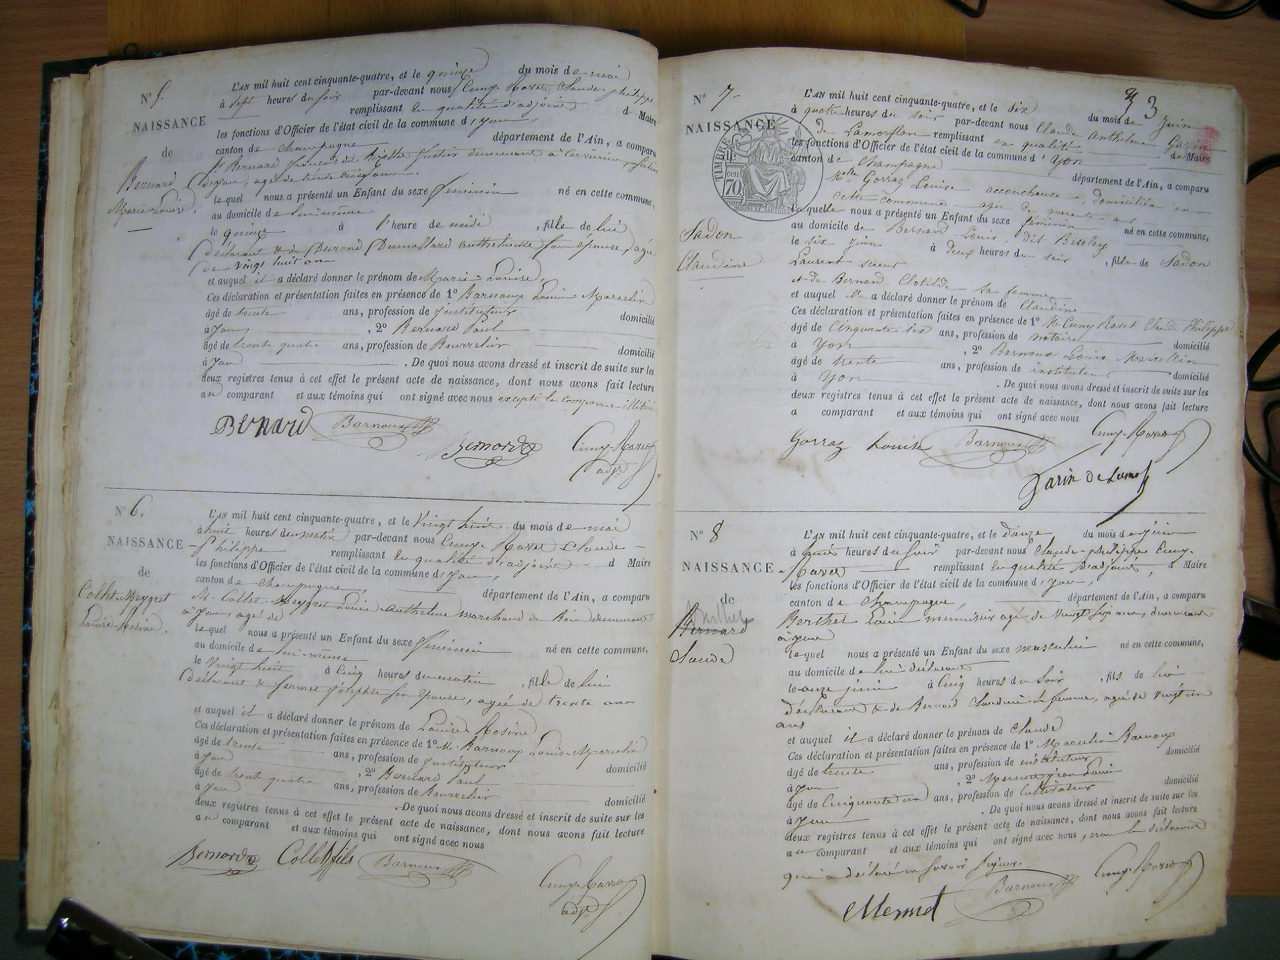 N° 5.
NAISSANCE
de
Bernard
Marie-Louise.
L'AN mil huit cent cinquante-quatre, et le quinze du mois de mai
à sept heures du soir par-devant nous Cuny-Ravet Claude-philippe
remplissant la qualité d'adjoint d Maire
les fonctions d'Officier de l'état civil de la commune d'yon,
canton de champagne département de l'Ain, a comparu
Bernard
lequel nous a présenté un Enfant du sexe féminin né en cette commune,
au domicile de lui-même
le quinze à l'heure de midi, fille de lui
déclarant & de anthelmette son épouse, âgée
de vingt huit ans
et auquel il a déclaré donner le prénom de Marie-Louise,
Ces déclaration et présentation faites en présence de 1° Barnoup Louis Marcelin
âgé de trente ans, profession de instituteur domicilié
à yon, 2° Bernard Paul
âgé de trente quatre ans, profession de domicilié
à yon. De quoi nous avons dressé et inscrit de suite sur les
deux registres tenus à cet effet le présent acte de naissance, dont nous avons fait lecture
au comparant et aux témoins qui ont signé avec nous excepté le comparant illitéré
BERNARD Barnoup Bernard Cuny-Ravet
adjt
N° 6.
NAISSANCE
de
Collet-Meygret
Louise-Rosine.
L'AN mil huit cent cinquante-quatre, et le vingt huit du mois de mai
à huit heures du matin par-devant nous Cuny-Ravet Claude-
Philippe remplissant la qualité d'adjoint d Maire
les fonctions d'Officier de l'état civil de la commune d'yon,
canton de champagne département de l'Ain, a comparu
M. Collet-Meygret Louis anthelme marchand de bois demeurant
à yon, âgé de
lequel nous a présenté un Enfant du sexe féminin né en cette commune,
au domicile de lui-même
le vingt huit à cinq heures du matin, fille de lui
déclarant & son épouse, âgée de trente ans
et auquel il a déclaré donner le prénom de Louise-Rosine,
Ces déclaration et présentation faites en présence de 1° M. Barnoup Louis-Marcelin
âgé de trente ans, profession de instituteur domicilié
à yon, 2° Bernard Paul
âgé de trente quatre ans, profession de domicilié
à yon. De quoi nous avons dressé et inscrit de suite sur les
deux registres tenus à cet effet le présent acte de naissance, dont nous avons fait lecture
au comparant et aux témoins qui ont signé avec nous
Bernard Collet fils Barnoup Cuny-Ravet
adjt
3
N° 7
NAISSANCE
TIMBRE
70
Sadon
Claudine
L'AN mil huit cent cinquante-quatre, et le six du mois de Juin
à quatre heures du soir par-devant nous Claude Anthelme Garin
de Lamorflan remplissant en qualité de Maire
les fonctions d'Officier de l'état civil de la commune d'Yon
canton de Champagne département de l'Ain, a comparu
Gorraz Louise accoucheuse, domiciliée en
cette commune âgée de quarante ans
laquelle nous a présenté un Enfant du sexe féminin né en cette commune,
au domicile de Bernard Louis, dit
le six Juin à deux heures du soir, fille de Sadon
Laurent
et de Bernard Clotilde sa femme
et auquel elle a déclaré donner le prénom de Claudine
Ces déclaration et présentation faites en présence de 1° M. Cuny Ravet Claude Philippe
âgé de cinquante six ans, profession de notaire domicilié
à Yon, 2° Barnoup Louis Marcellin
âgé de trente ans, profession de instituteur domicilié
à Yon. De quoi nous avons dressé et inscrit de suite sur les
deux registres tenus à cet effet le présent acte de naissance, dont nous avons fait lecture
a comparant et aux témoins qui ont signé avec nous
Gorraz Louise Barnoup Cuny-Ravet
Garin de Lamorf
N° 8
NAISSANCE
de
Berthet
Bernard
Claude
L'AN mil huit cent cinquante-quatre, et le douze du mois de juin
à heures du soir par-devant nous Claude-philippe Cuny-
Ravet remplissant la qualité d'adjoint, d Maire
les fonctions d'Officier de l'état civil de la commune d'yon,
canton de Champagne, département de l'Ain, a comparu
Berthet Louis menuisier âgé de vingt six ans, demeurant
à yon
lequel nous a présenté un Enfant du sexe masculin né en cette commune,
au domicile de lui déclarant
le onze juin à cinq heures du soir, fils de lui
déclarant & de Bernard Claudine sa femme, âgée de vingt un
ans
et auquel il a déclaré donner le prénom de Claude
Ces déclaration et présentation faites en présence de 1° Marcelin Barnoup
âgé de trente ans, profession de instituteur domicilié
à yon, 2° Louis
âgé de cinquante un ans, profession de cultivateur domicilié
à yon. De quoi nous avons dressé et inscrit de suite sur les
deux registres tenus à cet effet le présent acte de naissance, dont nous avons fait lecture
au comparant et aux témoins qui ont signé avec nous, non le déclarant
qui a déclaré ne savoir signer.
Mermet Barnoup Cuny-Ravet